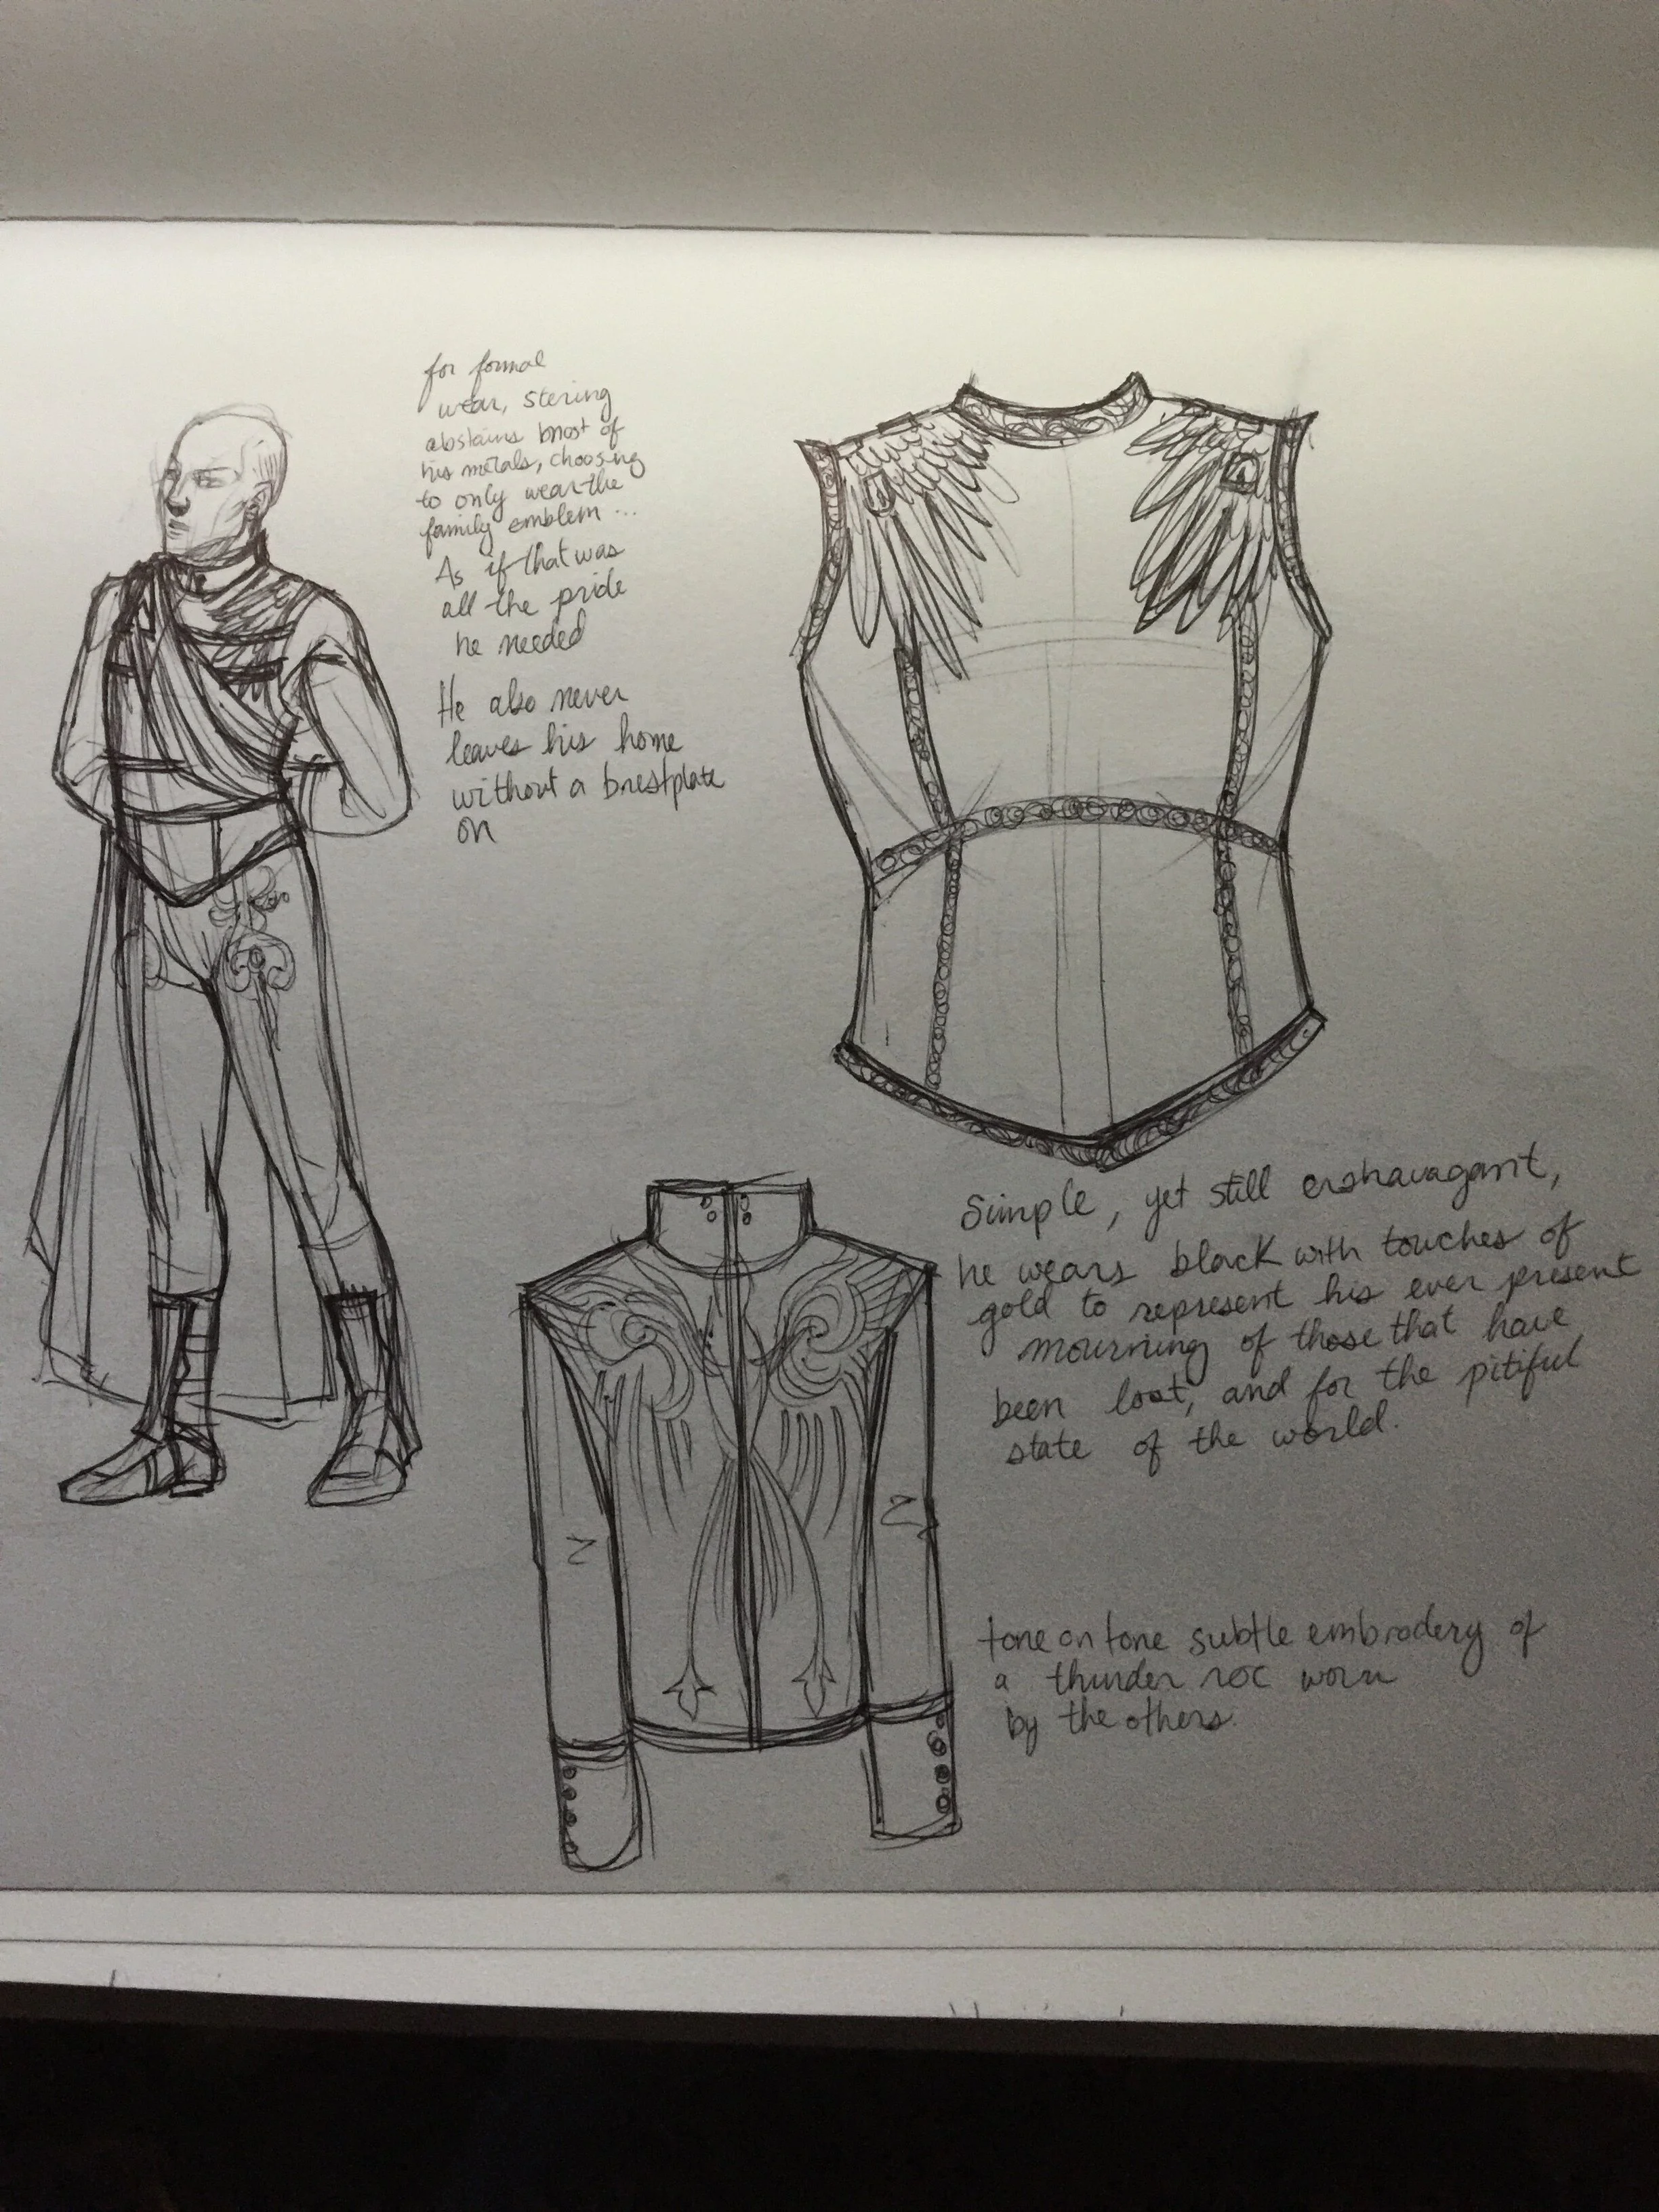 for formal
wear, stering
abstains most of
his metals, choosing
to only wear the
family emblem ...
As if that was
all the pride
he needed
He also never
leaves his home
without a brestplate
on
Simple, yet still extravagant,
he wears black with touches of
gold to represent his ever present
mourning of those that have
been lost, and for the pitiful
state of the world.
tone on tone subtle embrodery of
a thunder roc worn
by the others.